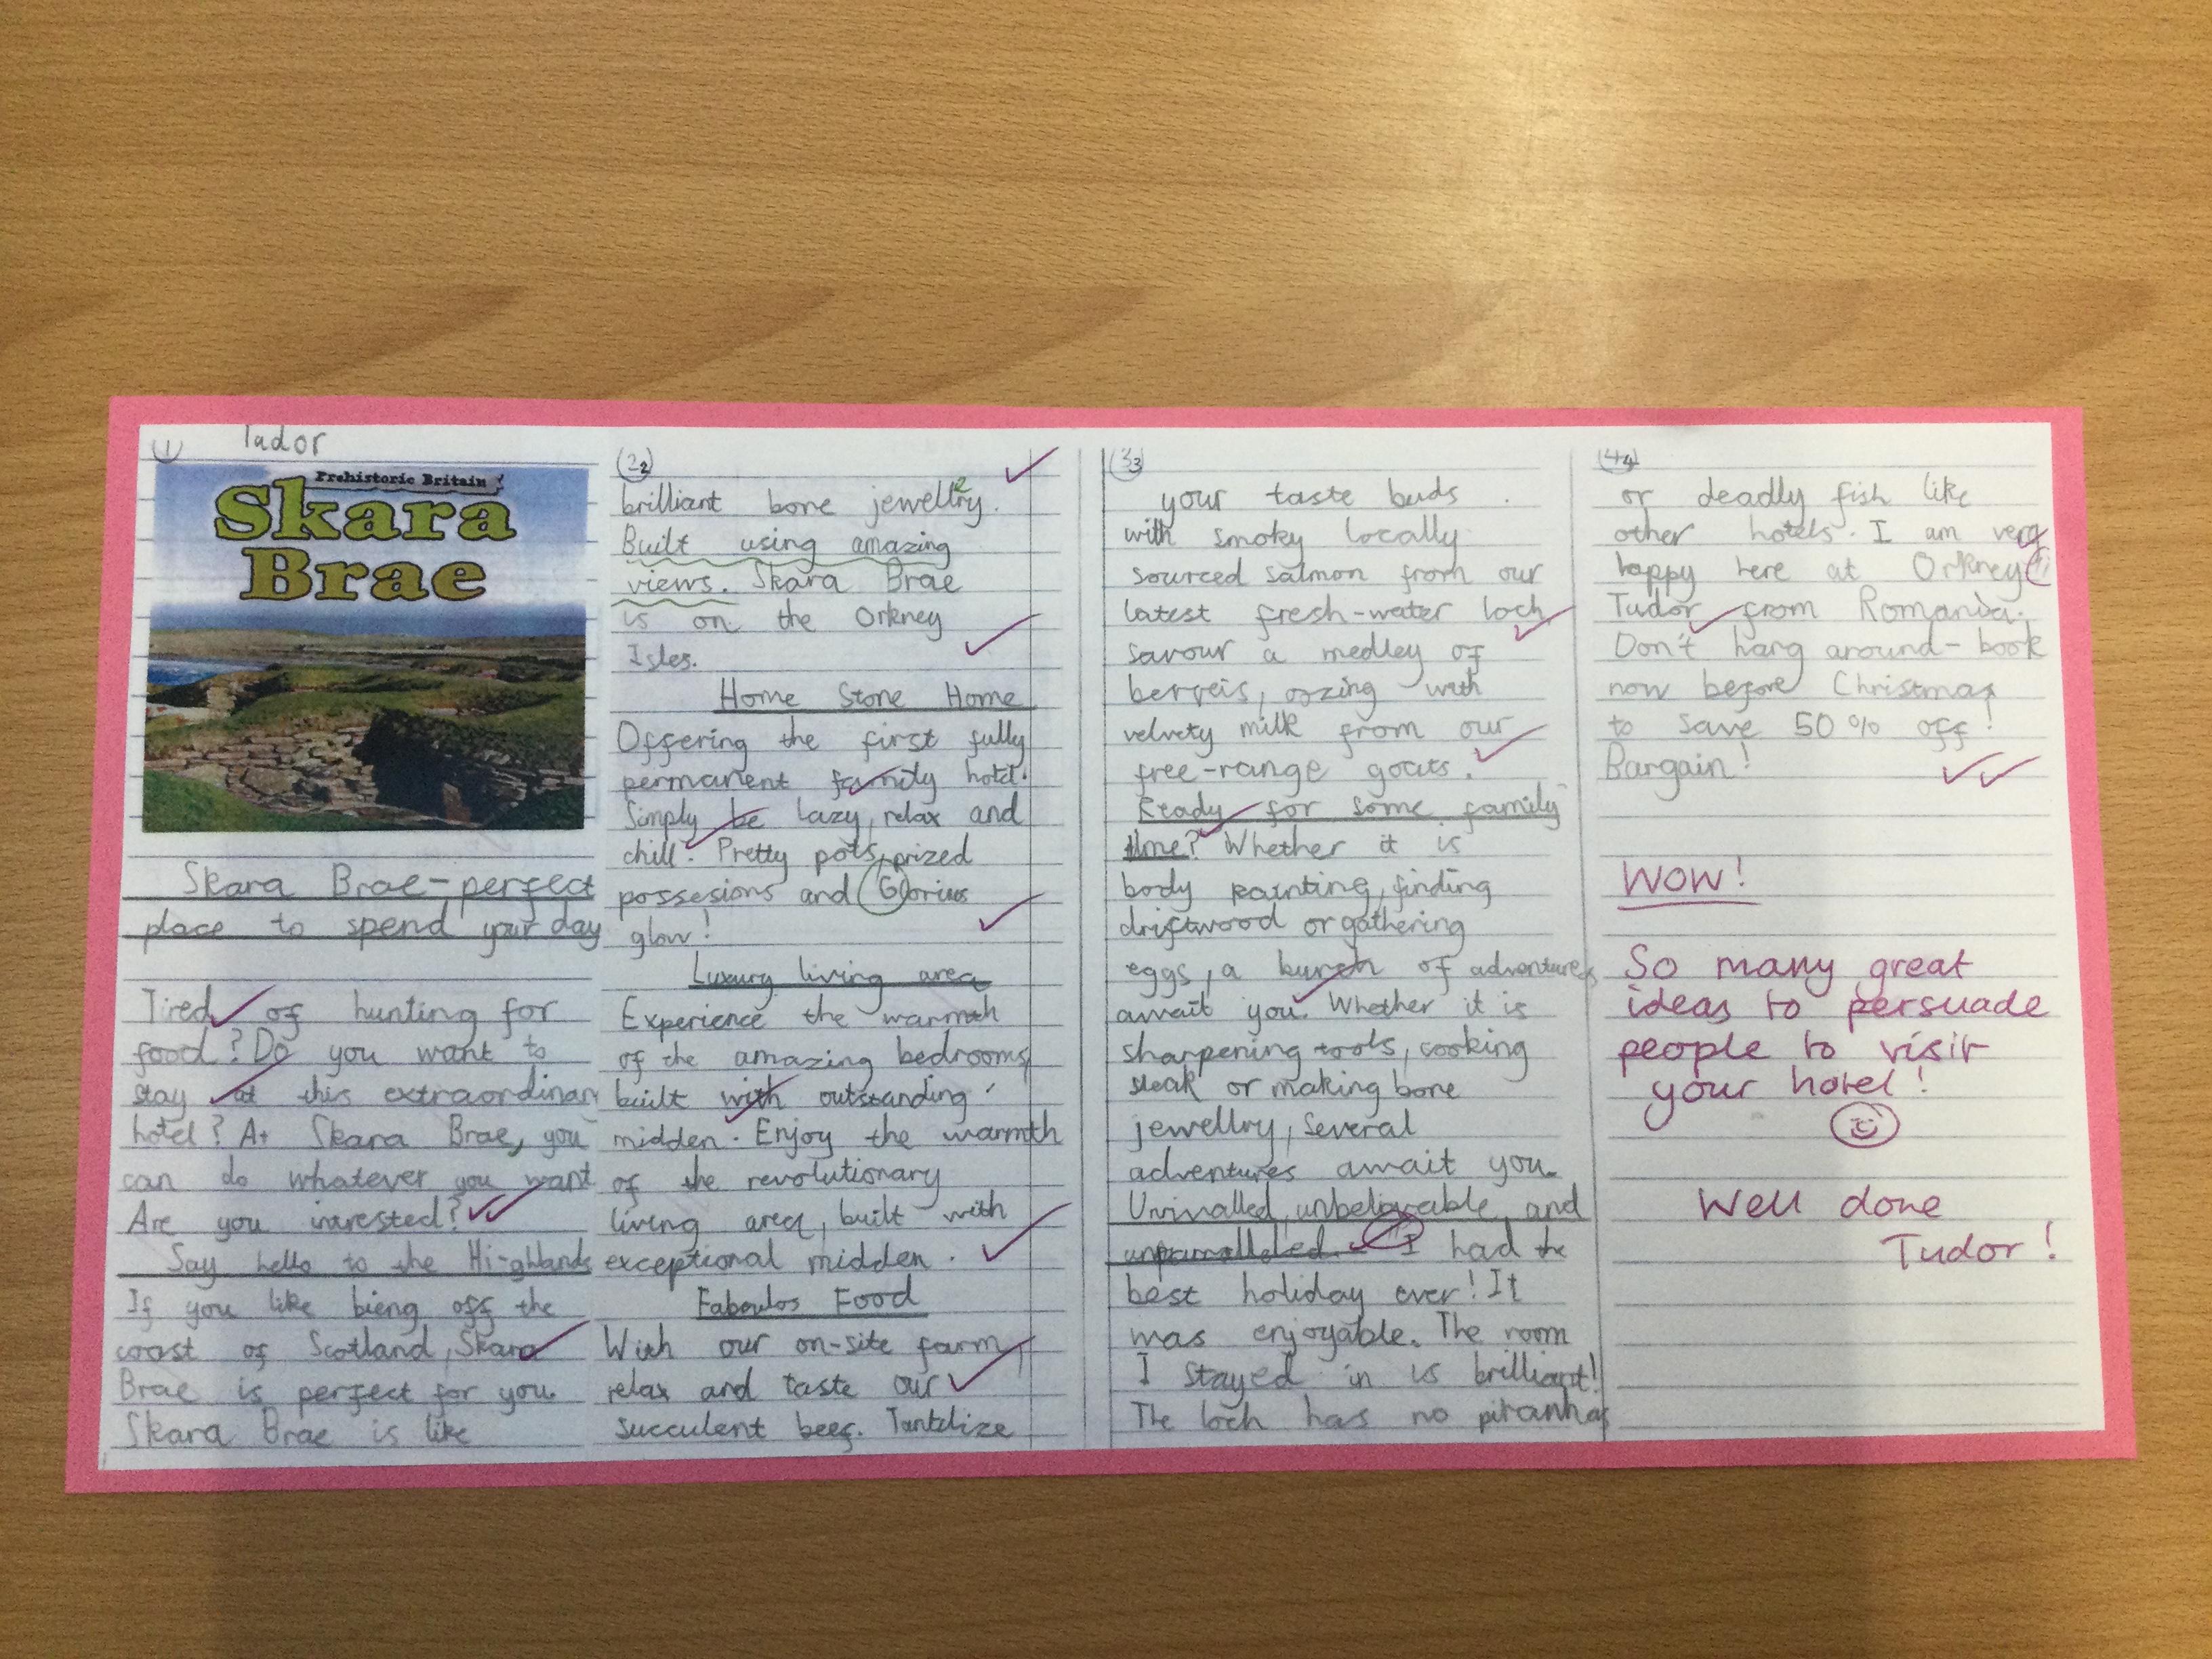 1
Tudor
Prehistoric Britain
Skara
Brae
Skara Brae-perfect
place to spend your day
Tired of hunting for
food? Do you want to
stay at this extraordinary
hotel? At Skara Brae, you
can do whatever you want
Are you intrested?
Say hello to the Hi-ghlands
If you like bieng off the
coast of Scotland, Skara
Brae is perfect for you.
Skara Brae is like
2
brilliant bone jewellry.
Built using amazing
views. Skara Brae
is on the Orkney
Isles.
Home Stone Home
Offering the first fully
permanent family hotel.
Simply be lazy, relax and
chill. Pretty pots, prized
possesions and Glorius
glow!
Luxury living area
Experience the warmth
of the amazing bedrooms,
built with outstanding
midden. Enjoy the warmth
of the revolutionary
living area, built with
exceptional midden.
Faboulos Food
With our on-site farm,
relax and taste our
succulent beef. Tantelize
3
your taste buds.
with smoky locally
sourced salmon from our
latest fresh-water loch
savour a medley of
berreis, ozing with
velvety milk from our
free-range goats.
Ready for some family
time? Whether it is
body painting, finding
driftwood or gathering
eggs, a bunch of adventures
await you. Whether it is
sharpening tools, cooking
steak or making bone
jewellry, several
adventures await you.
Unrivalled, unbelievable and
unparralleled. I had the
best holiday ever! It
was enjoyable. The room
I stayed in is brilliant!
The loch has no piranhas
4
or deadly fish like
other hotels. I am very
happy here at Orkney
Tudor from Romania.
Don't hang around- book
now before Christmas
to save 50% off!
Bargain!
WOW!
So many great
ideas to persuade
people to visit
your hotel!
Well done
Tudor!